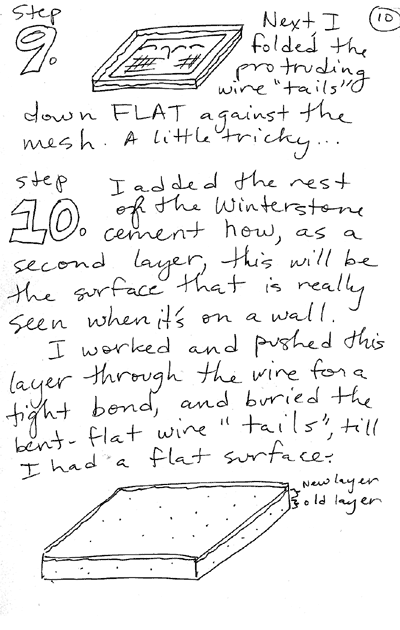 10
step
9.
Next, I
folded the
protruding
wire "tails"
down FLAT against the
mesh. A little tricky...
step
10.
I added the rest
of the Winterstone
cement now, as a
second layer, this will be
the surface that is really
seen when it's on a wall.
I worked and pushed this
layer through the wire for a
tight bond, and buried the
bent-flat wire "tails", till
I had a flat surface.
New layer
old layer